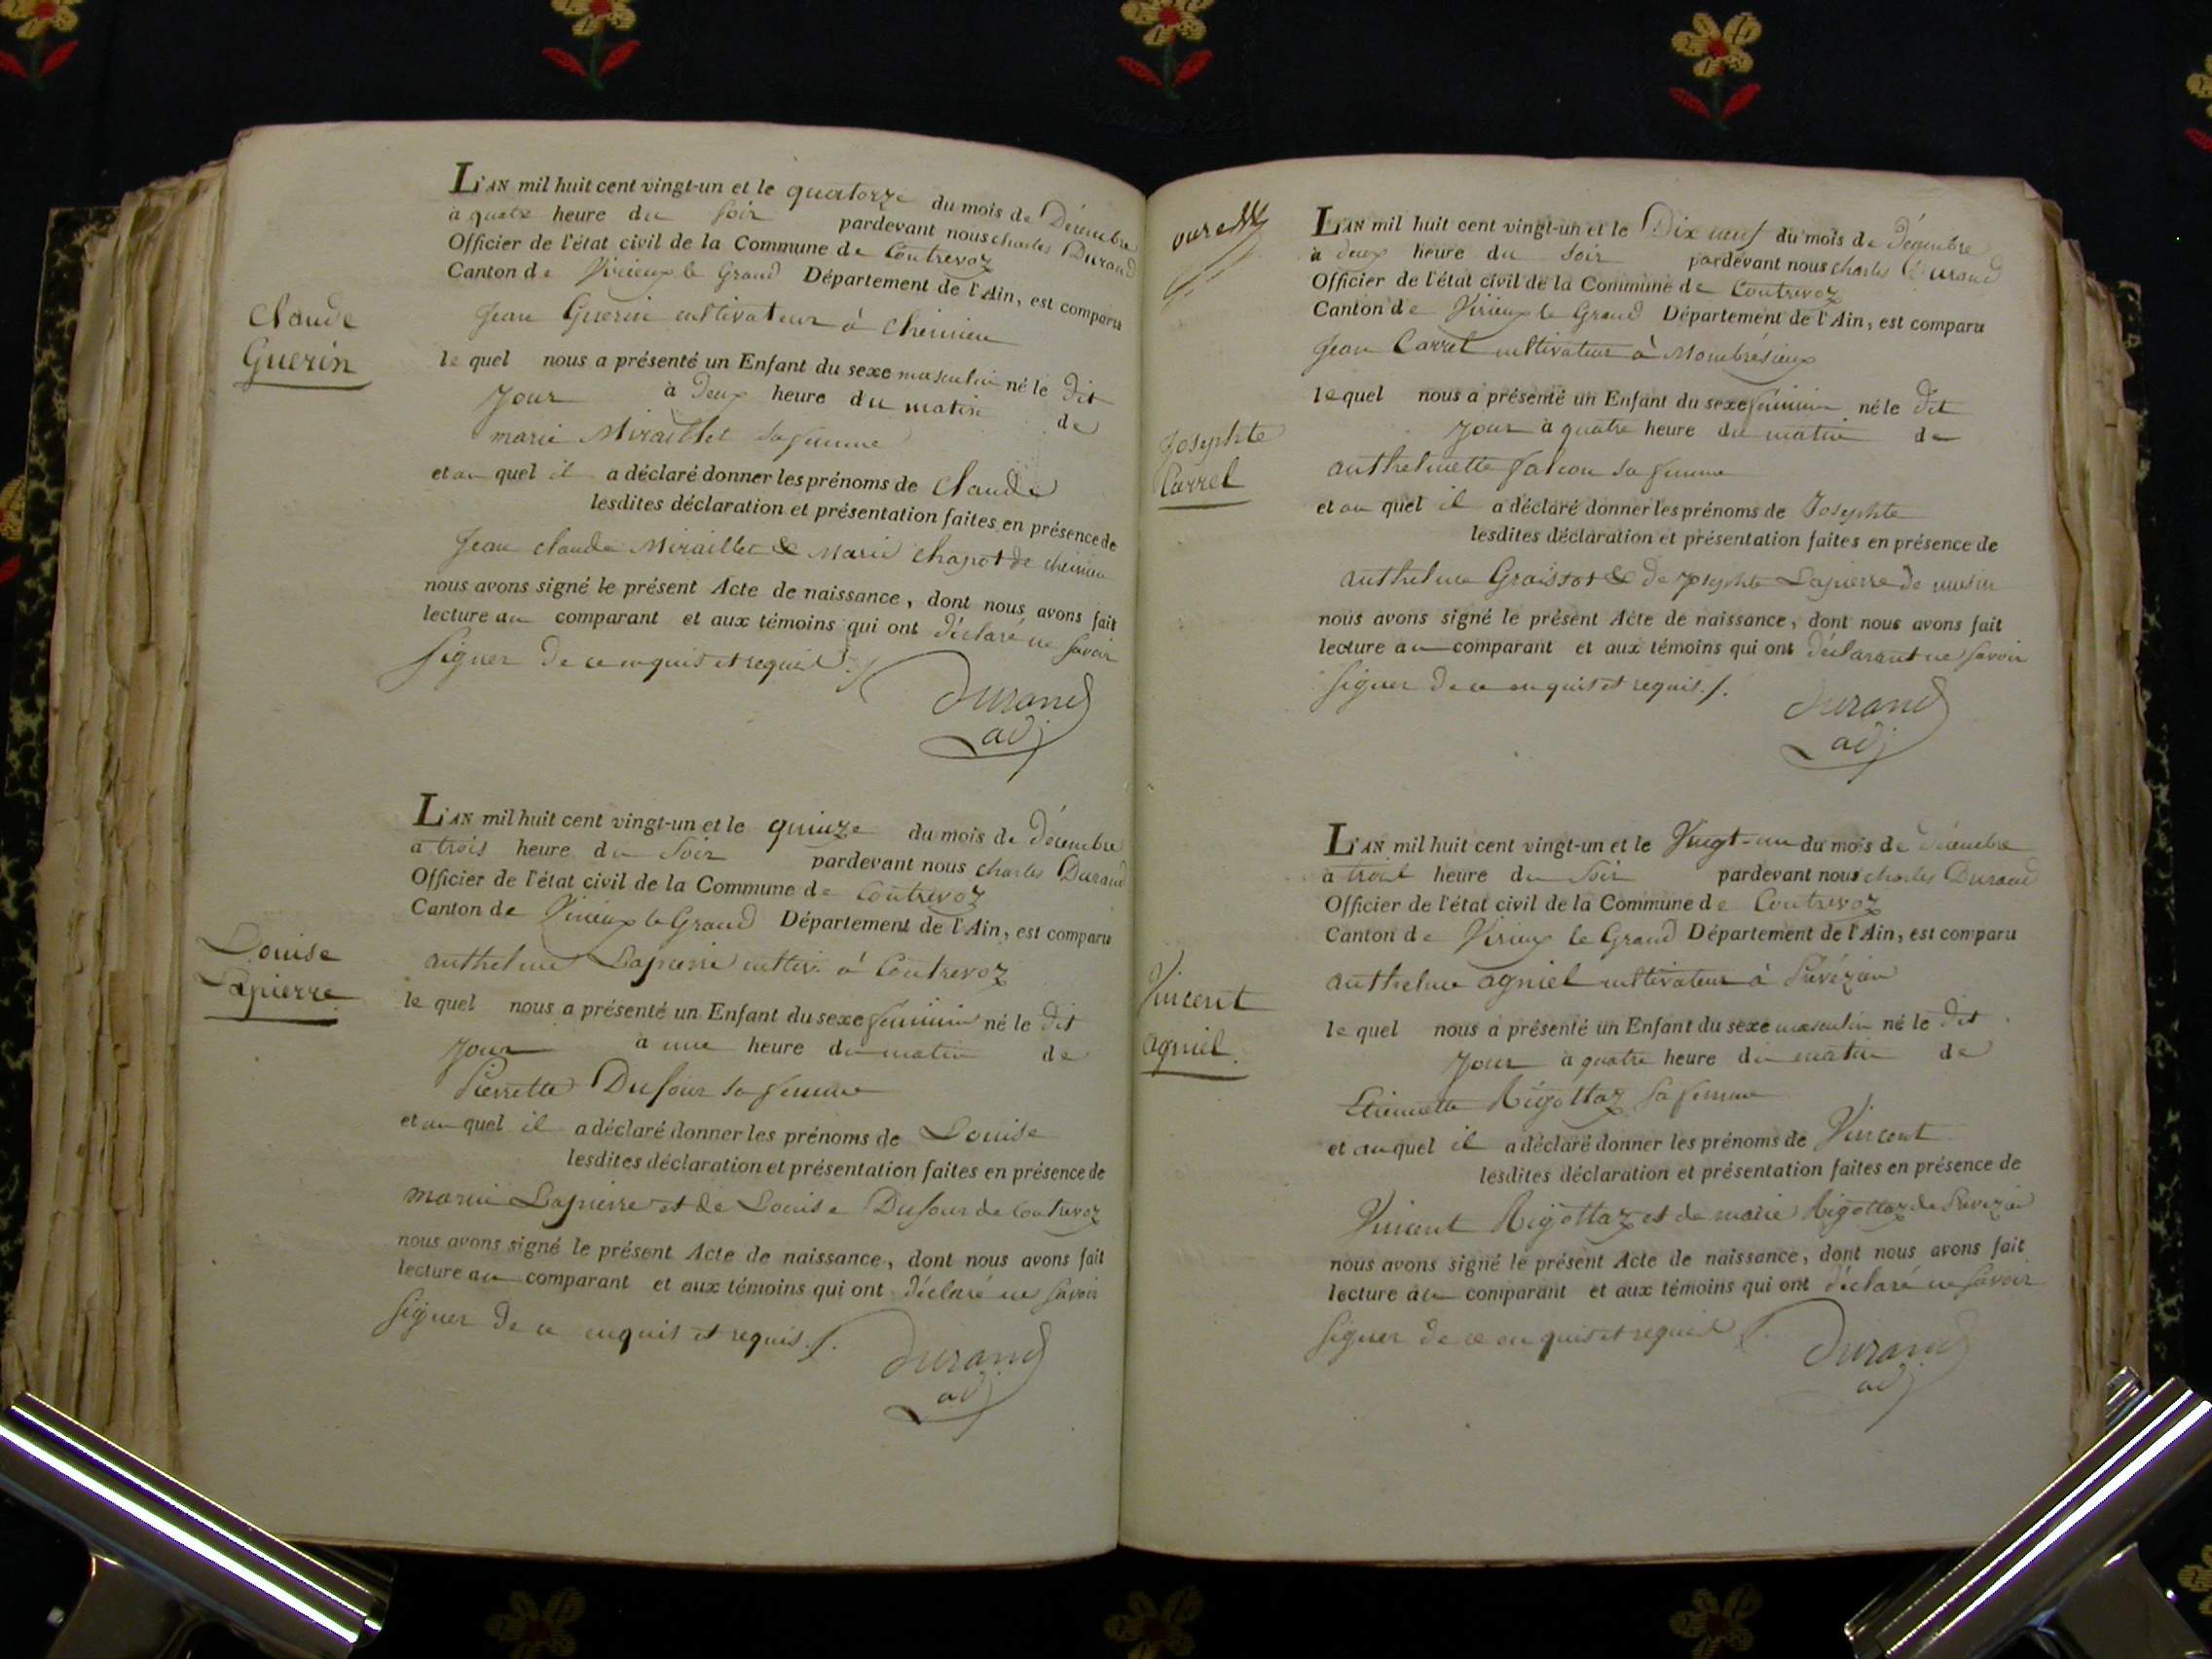 Claude
Guerin
L'AN mil huit cent vingt-un et le quatorze du mois de Décembre
à quatre heure du soir pardevant nous charles Durand
Officier de l'état civil de la Commune de Contrevoz
Canton de Virieux le Grand Département de l'Ain, est comparu
Jean Guerin cultivateur à Cheinieu
le quel nous a présenté un Enfant du sexe masculin né le dit
jour à deux heure du matin de
marie Miraillet sa femme
et au quel il a déclaré donner les prénoms de Claude
lesdites déclaration et présentation faites en présence de
Jean claude Miraillet & Marie Chapot de cheinieu
nous avons signé le présent Acte de naissance, dont nous avons fait
lecture au comparant et aux témoins qui ont déclaré ne savoir
signer de ce enquis et requis ./.
Durand
adj
Louise
Lapierre
L'AN mil huit cent vingt-un et le quinze du mois de décembre
à trois heure du soir pardevant nous charles Durand
Officier de l'état civil de la Commune de Contrevoz
Canton de Virieux le Grand Département de l'Ain, est comparu
anthelme Lapierre cultiv. à Contrevoz
le quel nous a présenté un Enfant du sexe feminin né le dit
jour à une heure du matin de
Pierrette Dufour sa femme
et au quel il a déclaré donner les prénoms de Louise
lesdites déclaration et présentation faites en présence de
marie Lapierre et de Louise Dufour de Contrevoz
nous avons signé le présent Acte de naissance, dont nous avons fait
lecture au comparant et aux témoins qui ont déclaré ne savoir
signer de ce enquis et requis ./.
Durand
adj
Josephte
Carrel
L'AN mil huit cent vingt-un et le Dix neuf du mois de décembre
à deux heure du soir pardevant nous charles Durand
Officier de l'état civil de la Commune de Contrevoz
Canton de Virieux le Grand Département de l'Ain, est comparu
Jean Carrel cultivateur à Mombrésieux
le quel nous a présenté un Enfant du sexe féminin né le dit
jour à quatre heure du matin de
anthelmette falcon sa femme
et au quel il a déclaré donner les prénoms de Josephte
lesdites déclaration et présentation faites en présence de
anthelme Graissot & de josephte Lapierre de musin
nous avons signé le présent Acte de naissance, dont nous avons fait
lecture au comparant et aux témoins qui ont déclarant ne savoir
signer de ce enquis et requis ./.
Durand
adj
Vincent
agniel
L'AN mil huit cent vingt-un et le Vingt-un du mois de décembre
à trois heure du soir pardevant nous charles Durand
Officier de l'état civil de la Commune de Contrevoz
Canton de Virieux le Grand Département de l'Ain, est comparu
anthelme agniel cultivateur à Prévézieu
le quel nous a présenté un Enfant du sexe masculin né le dit
jour à quatre heure du matin de
Etiennette Rigottaz sa femme
et au quel il a déclaré donner les prénoms de Vincent
lesdites déclaration et présentation faites en présence de
Vincent Rigottaz et de marie Rigottaz de Prevezieu
nous avons signé le présent Acte de naissance, dont nous avons fait
lecture au comparant et aux témoins qui ont déclaré ne savoir
signer de ce enquis et requis ./.
Durand
adj